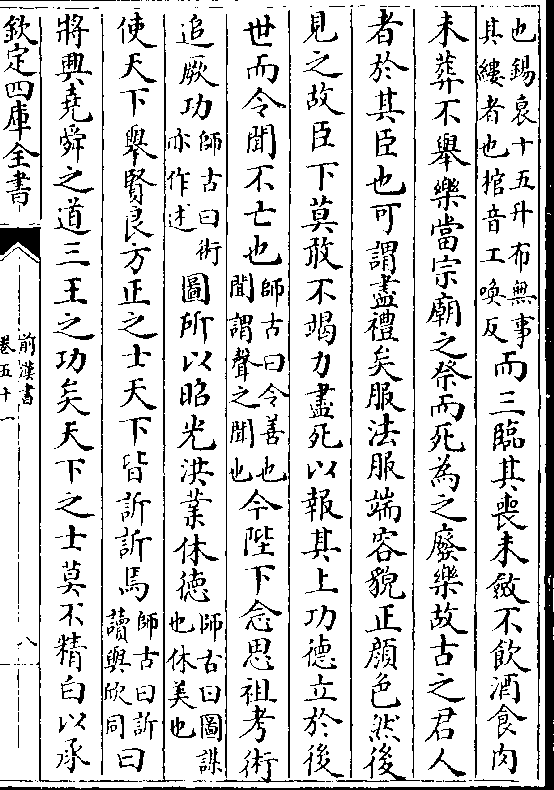 也錫哀十五升布無事
其縷者也棺音工喚反
而三臨其喪未斂不飲酒食肉
未葬不舉樂當宗廟之祭而死為之廢樂故古之君人
者於其臣也可謂盡禮矣服法服端容貌正顔色然後
見之故臣下莫敢不竭力盡死以報其上功德立於後
世而令聞不亡也
師古曰令善也
聞謂聲之聞也
今陛下念思祖考術
追厥功
師古曰術
亦作述
圖所以昭光洪業休德
師古曰圖謀
也休美也
使天下舉賢良方正之士天下皆訢訢焉
師古曰訢
讀與欣同
曰
將興堯舜之道三王之功矣天下之士莫不精白以承
欽定四庫全書
前漢書
卷五十一
八